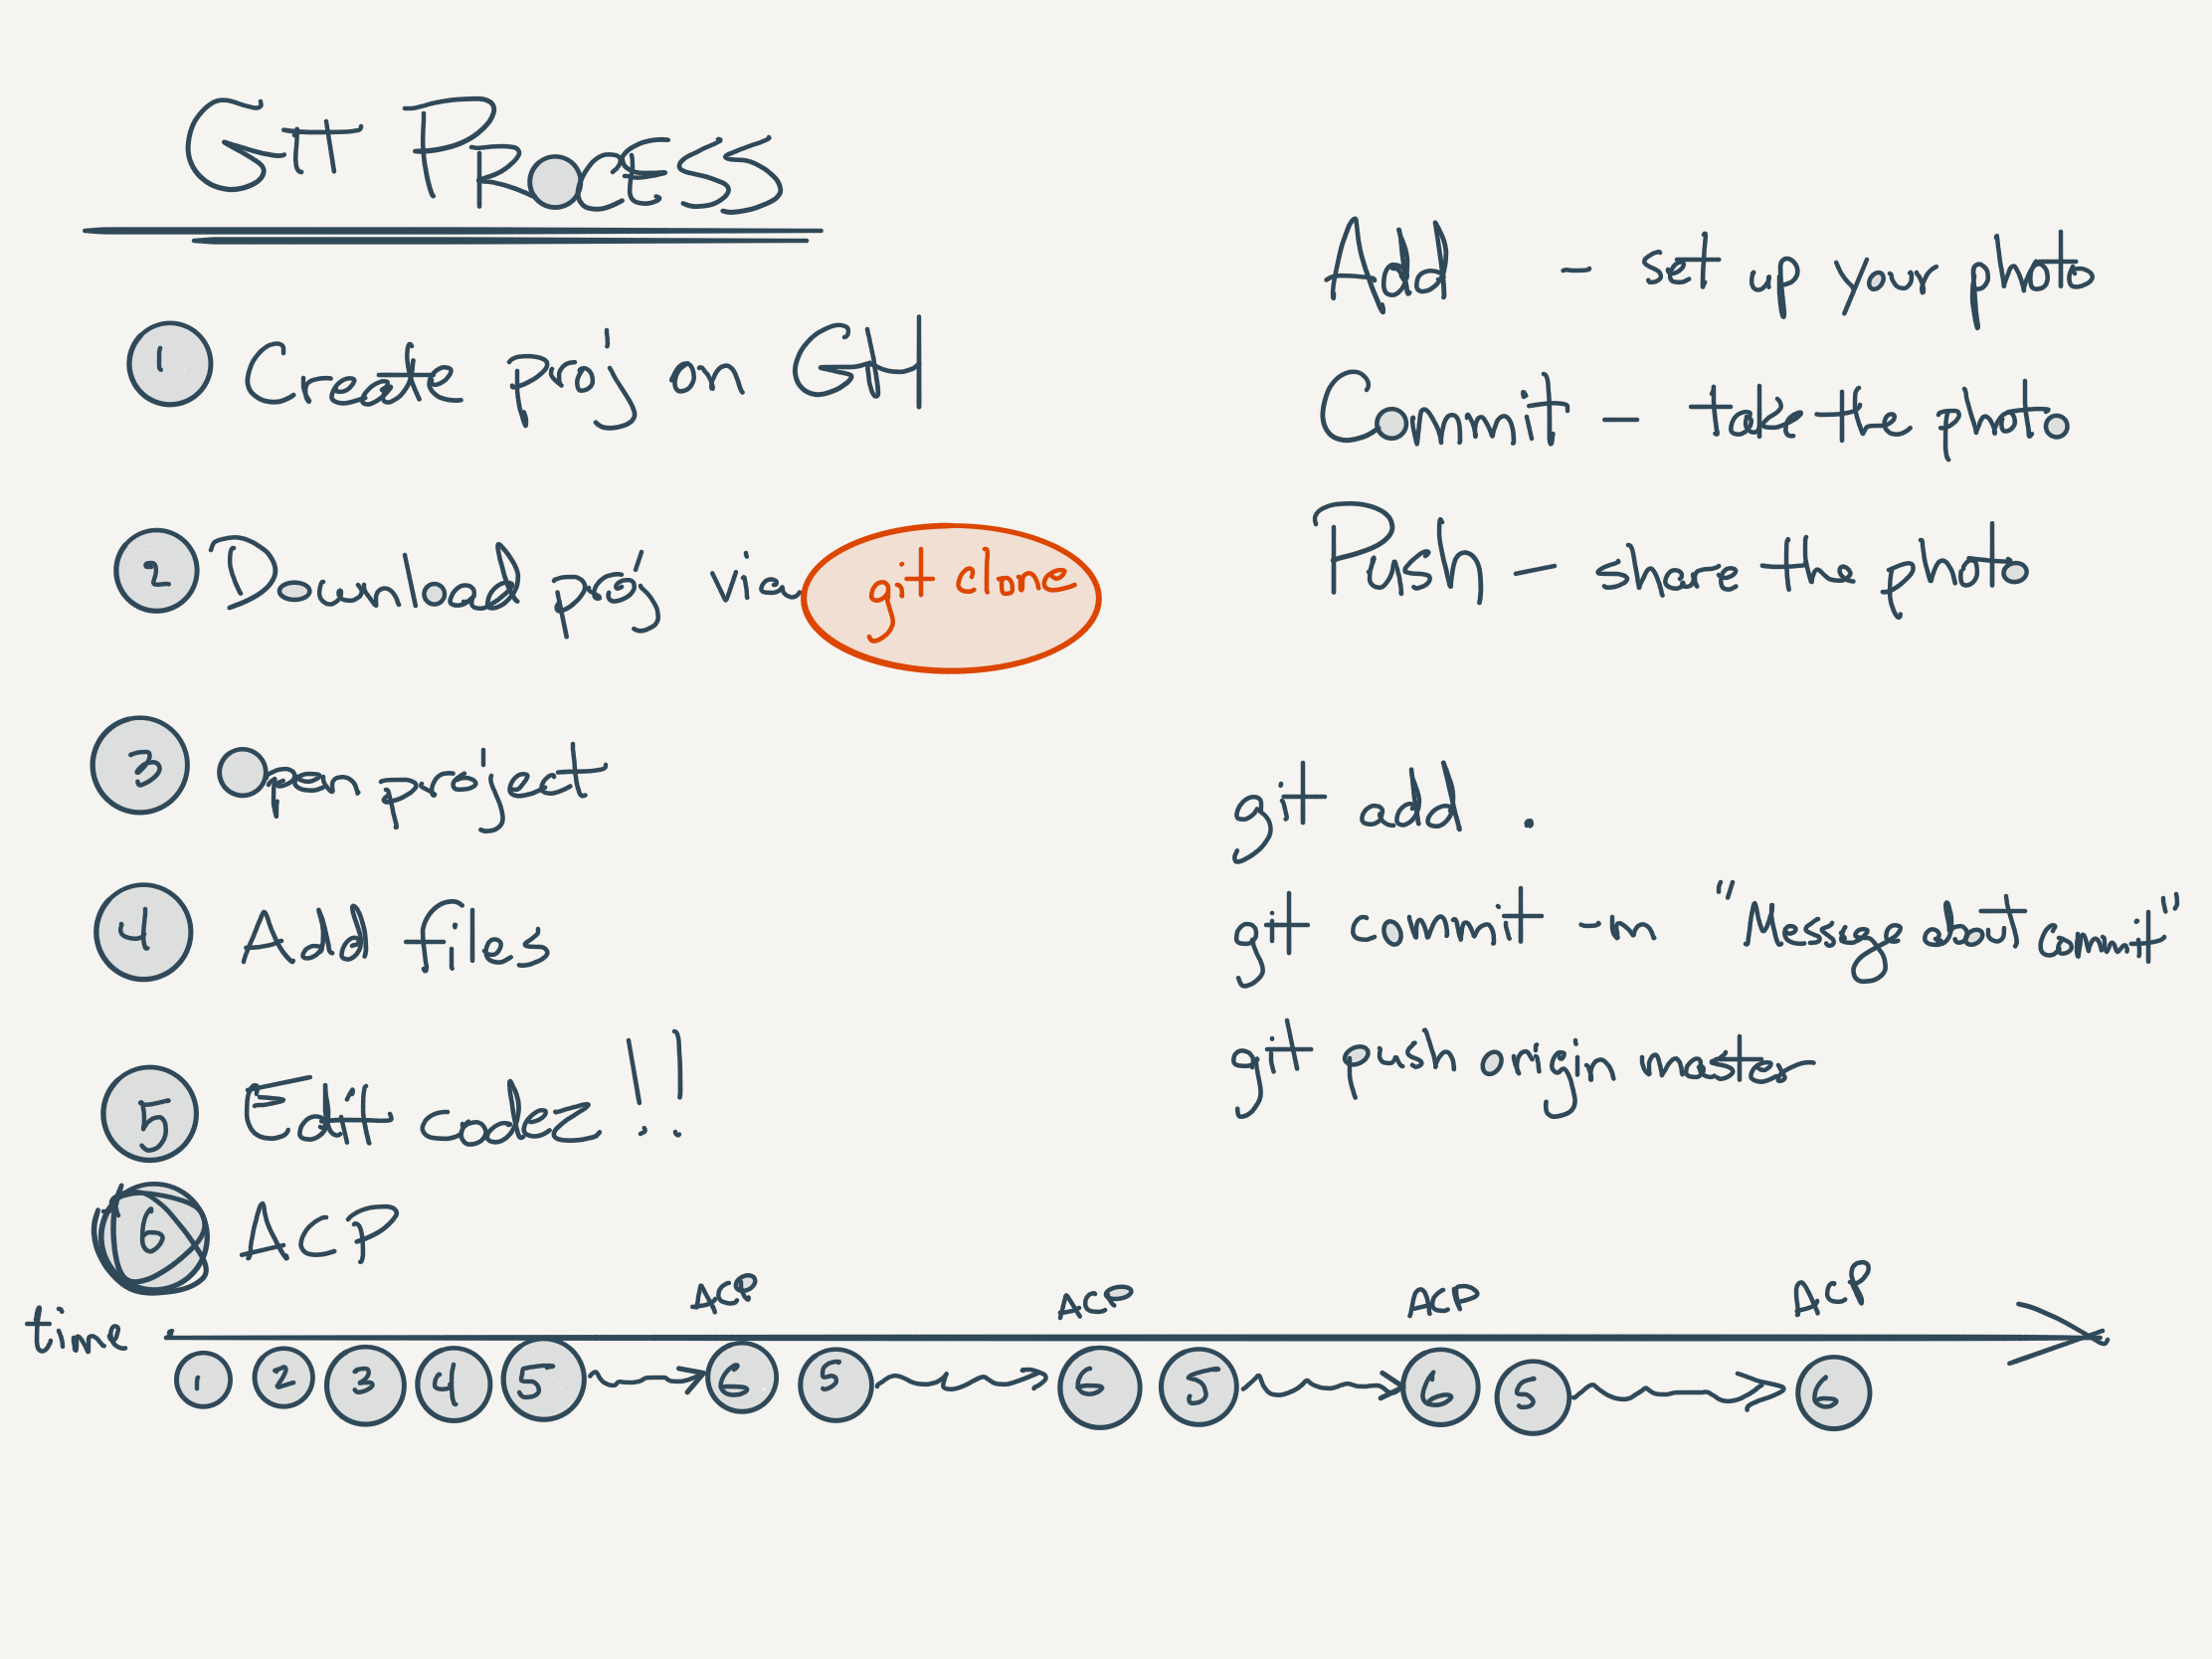 Git Process
1 Create proj on GH
2 Download proj via git clone
3 Open project
4 Add files
5 Edit codez!!
6 ACP
Add - set up your photo
Commit - take the photo
Push - share the photo
git add .
git commit -m "Message about commit"
git push origin master
ACP ACP ACP ACP
time
1 2 3 4 5 6 5 6 5 6 5 6